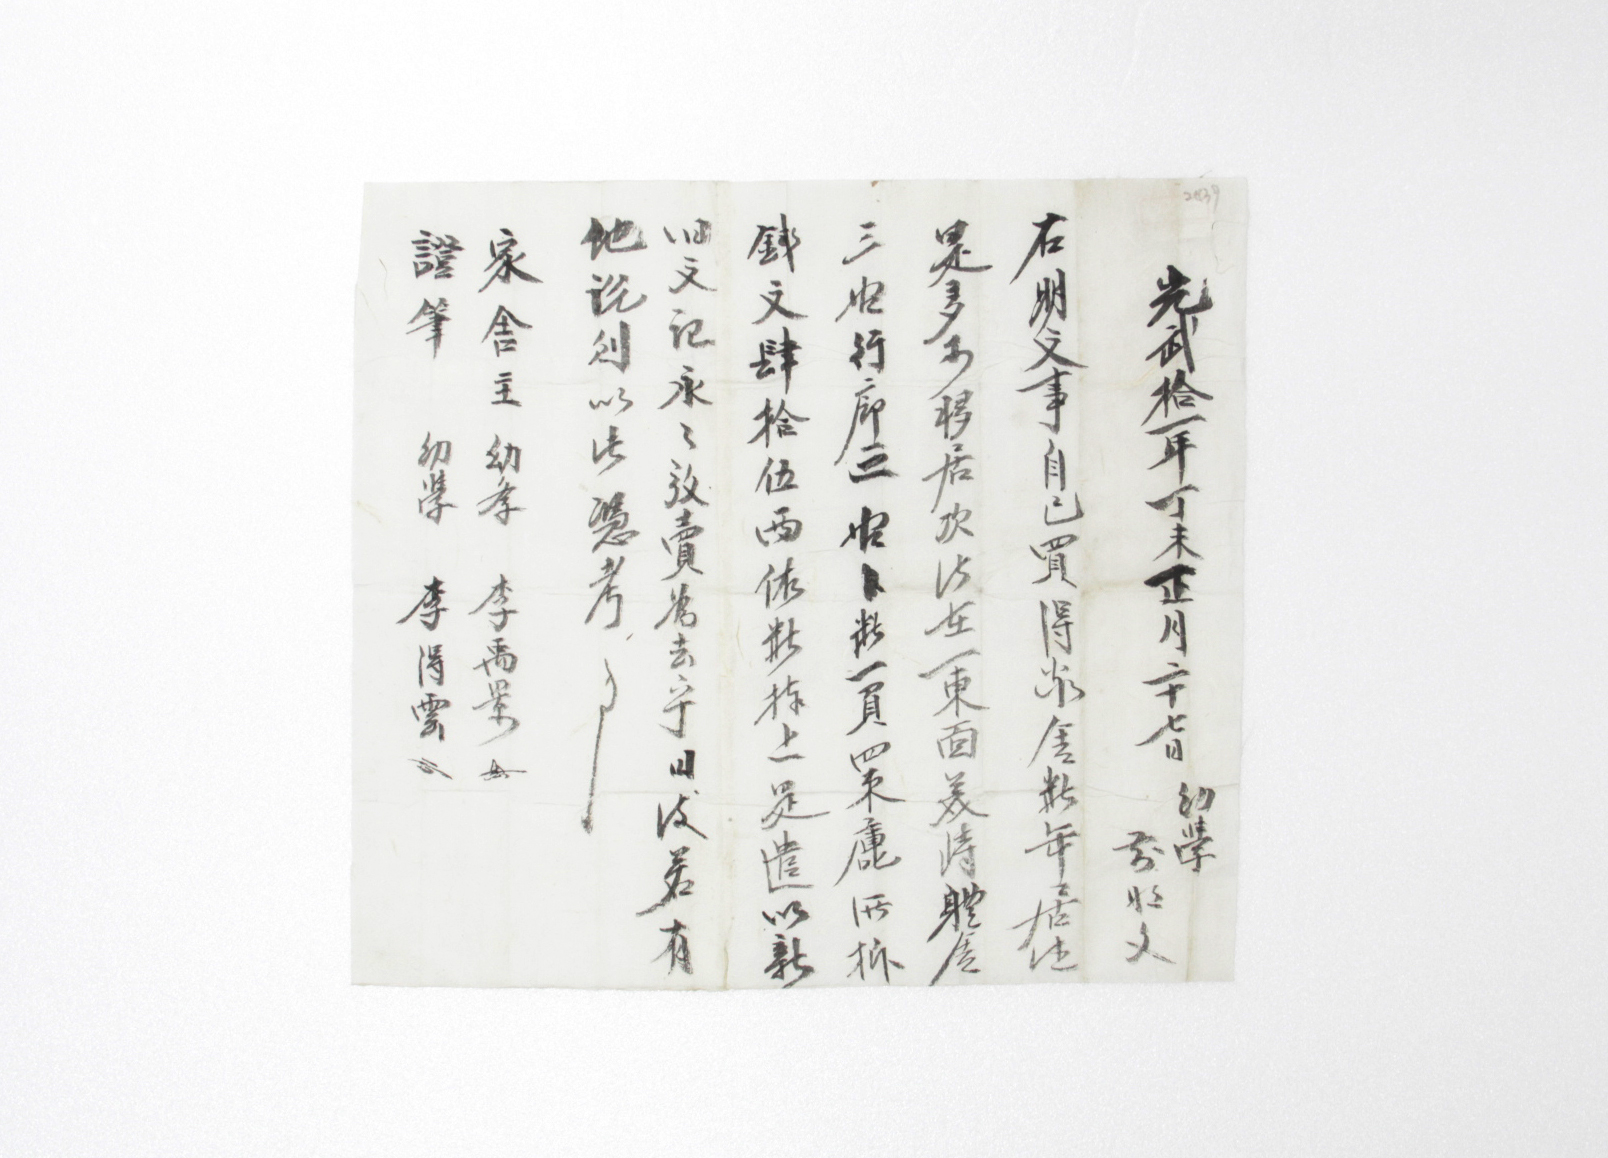 光武拾一年丁未正月二十七日 幼學
前明文
右明文事自己買得家舍數年居住
是多可移居次伏在一東面美時體舍
三間行廊三間卜數一負四束庫所捧
錢文肆拾伍兩依數捧上是遣以新
旧文記永〻放賣爲去乎日後若有
他說則以此憑考
家舍主 幼學 李禹景
證筆 幼學 李得雲
2439